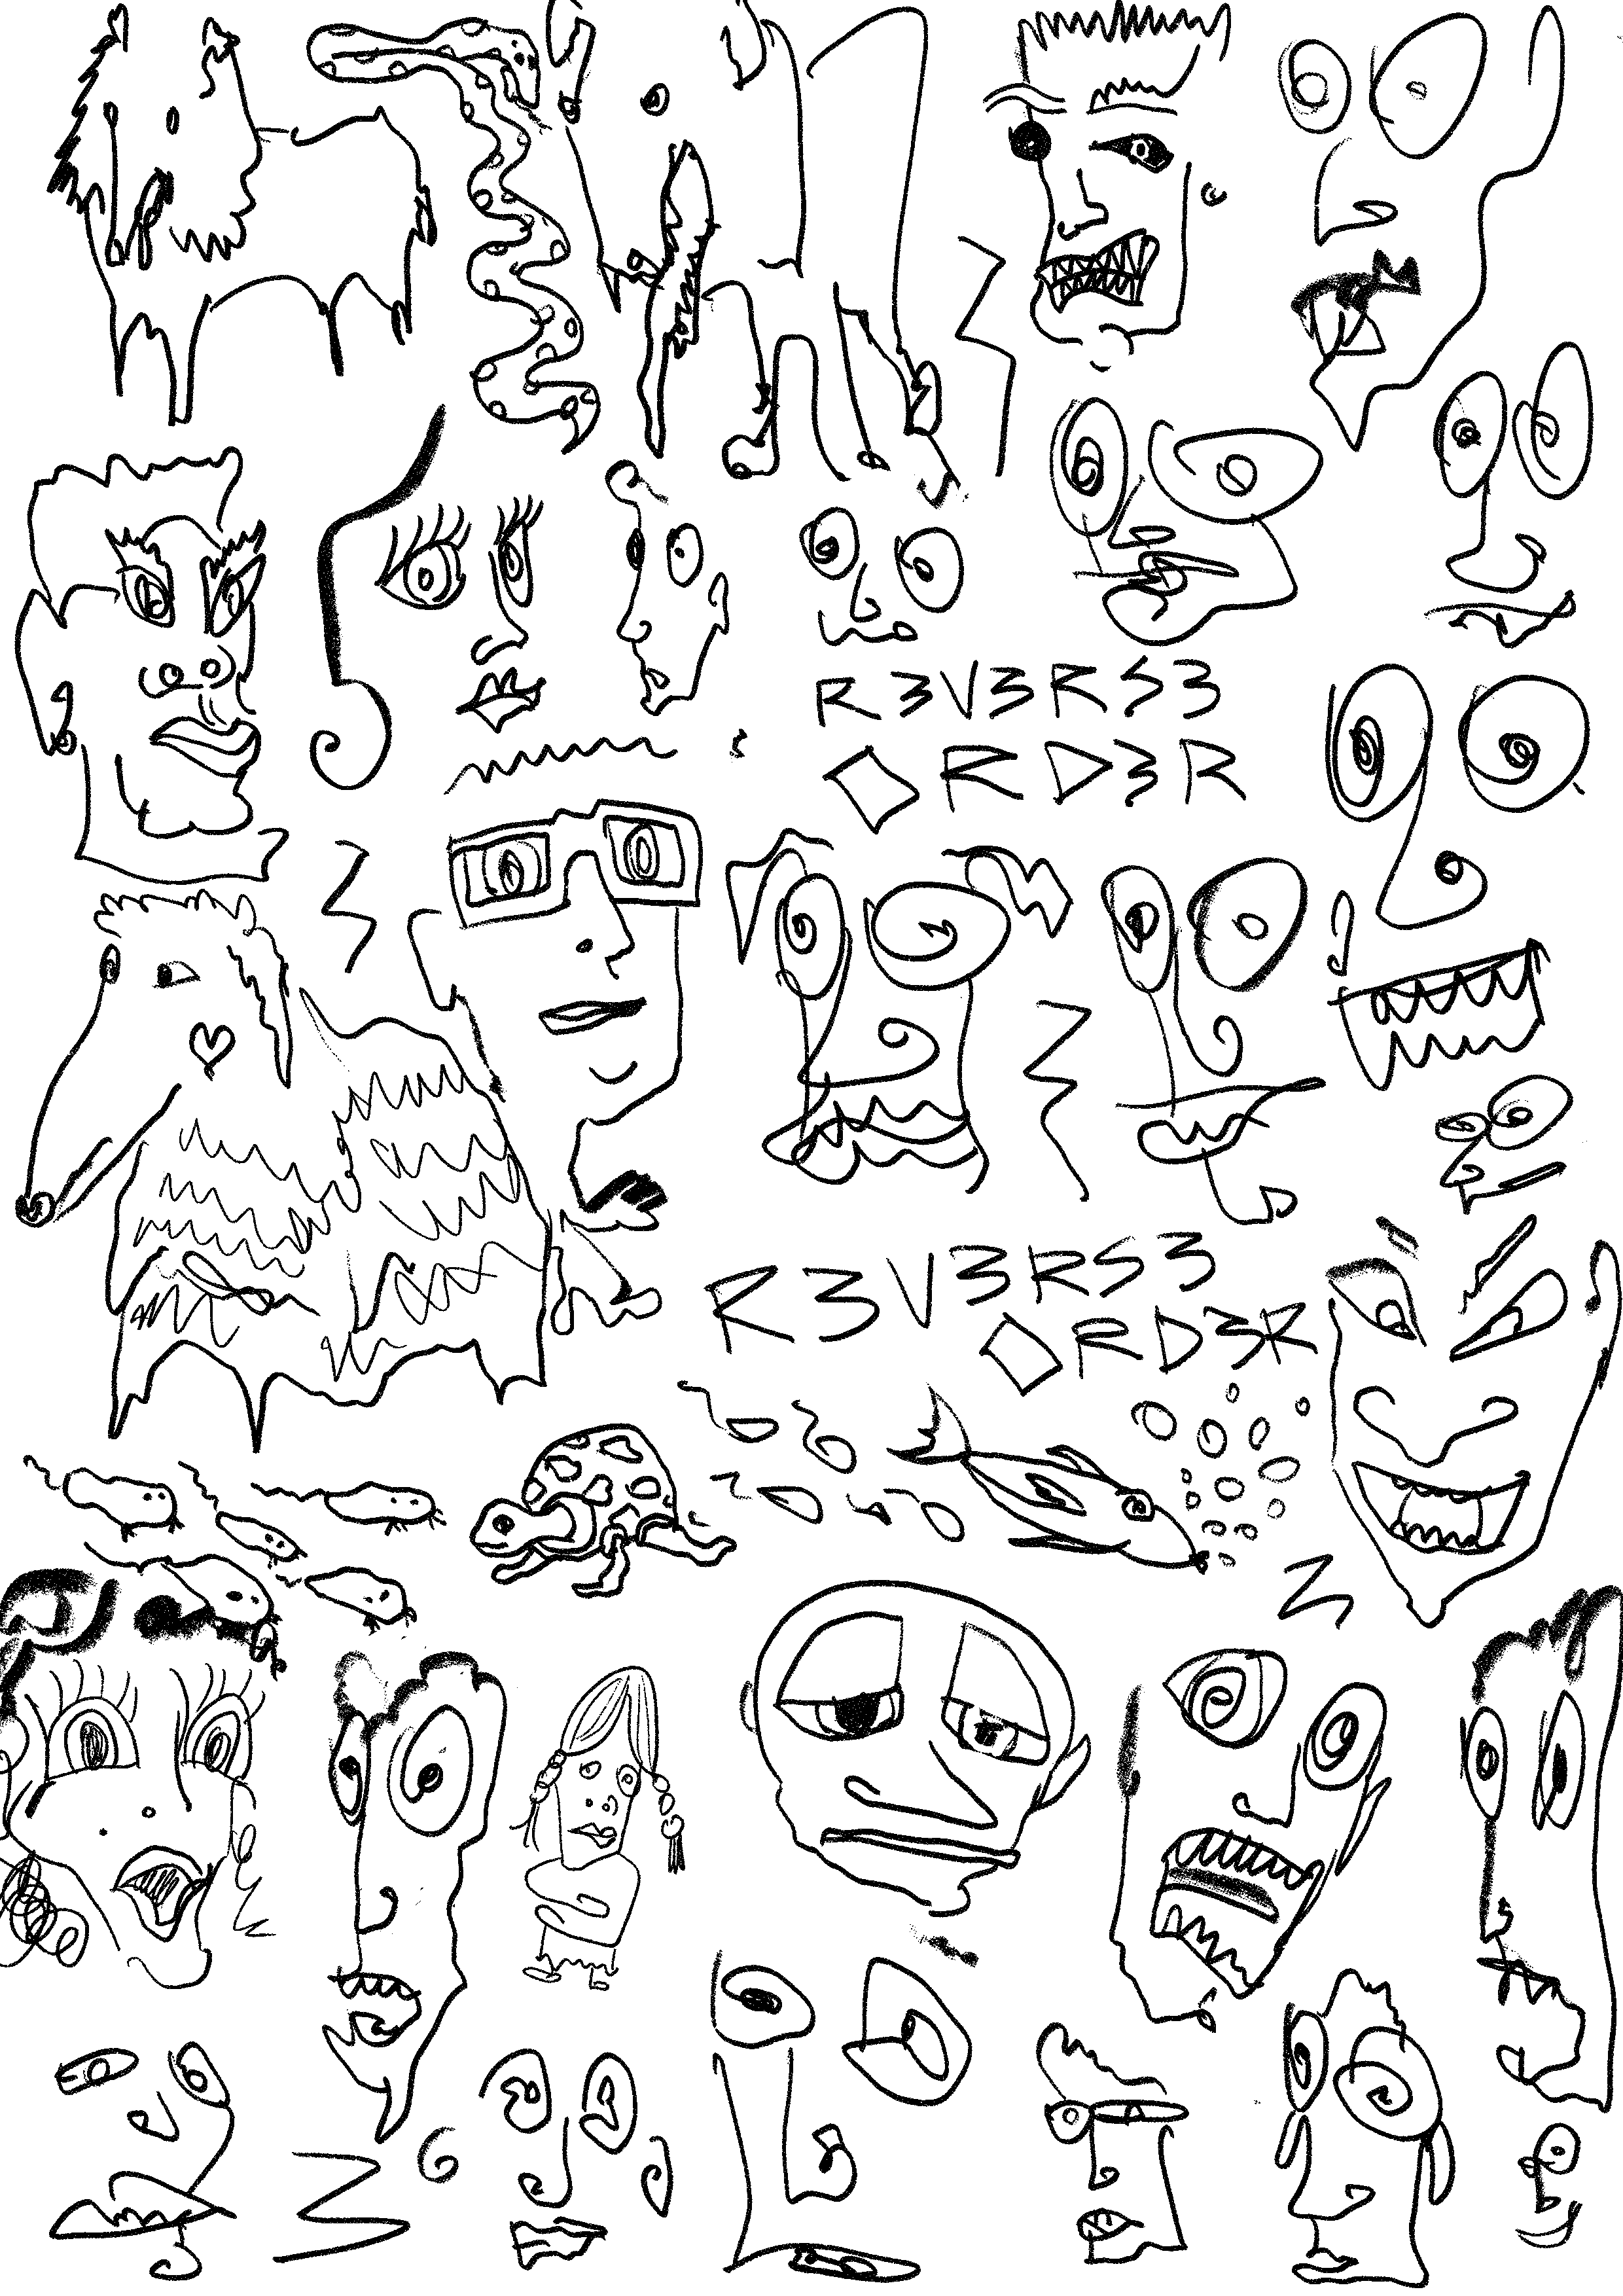 R3V3RS3
ORD3R
R3V3RS3
ORD3R